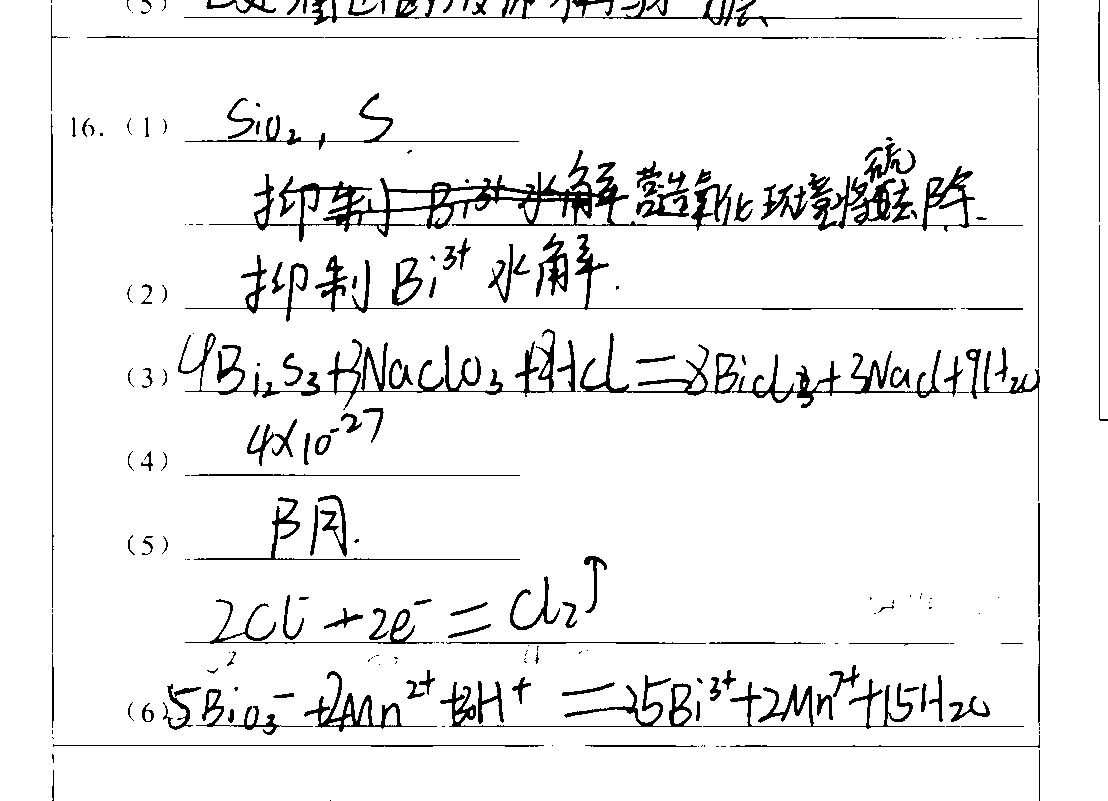 (3)
16. (1) SiO₂, S
抑制 Bi³⁺ 水解 营造氧化环境将硫去除.
(2) 抑制 Bi³⁺ 水解.
(3) 4Bi₂S₃+3NaClO₃+24HCl=8BiCl₃+3NaCl+9H₂O
(4) 4×10⁻²⁷
(5) 阳.
2Cl⁻+2e⁻=Cl₂↑
(6) 5BiO₃⁻+2Mn²⁺+30H⁺=5Bi³⁺+2Mn⁷⁺+15H₂O